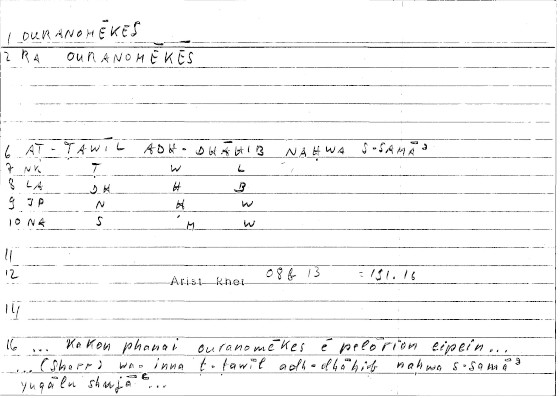 1 OURANOMĒKĒS
2 RA OURANOMĒKĒS
6 AṬ-ṬAWĪL ADH-DHĀHIB NAḤWA S-SAMĀʾ
7 NK Ṭ W L
8 LA DH H B
9 JP N Ḥ W
10 NA S M W
11
12 Arist Rhet 08b 13 = 191.16
14
16 ... Kakon phanai ouranomēkes ē pelōrion eipein...
... (Sharr) wa-inna ṭ-ṭawīl adh-dhāhib naḥwa s-samāʾ
yuqālu shujāʿ...